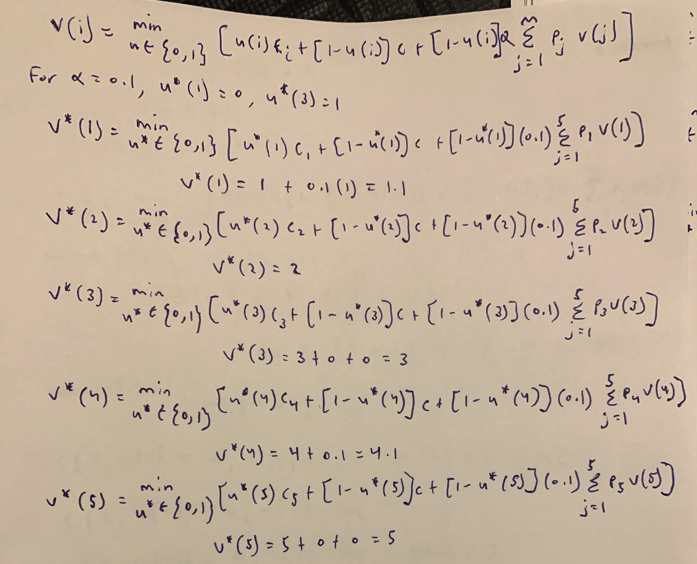 V(i) = min u∈{0,1} [u(i)ξi + [1-u(i)] c + [1-u(i)]α m Σ j=1 Pj V(j)]
For α = 0.1, u*(1) = 0, u*(3) = 1
V*(1) = min u*∈{0,1} [u*(1) c1 + [1-u*(1)] c + [1-u*(1)] (0.1) 5 Σ j=1 P1 V(1)]
V*(1) = 1 + 0.1(1) = 1.1
V*(2) = min u*∈{0,1} [u*(2) c2 + [1-u*(2)] c + [1-u*(2)] (0.1) 5 Σ j=1 P2 V(2)]
V*(2) = 2
V*(3) = min u*∈{0,1} [u*(3) c3 + [1-u*(3)] c + [1-u*(3)] (0.1) 5 Σ j=1 P3 V(3)]
V*(3) = 3 + 0 + 0 = 3
V*(4) = min u*∈{0,1} [u*(4) c4 + [1-u*(4)] c + [1-u*(4)] (0.1) 5 Σ j=1 P4 V(4)]
V*(4) = 4 + 0.1 = 4.1
V*(5) = min u*∈{0,1} [u*(5) c5 + [1-u*(5)] c + [1-u*(5)] (0.1) 5 Σ j=1 P5 V(5)]
V*(5) = 5 + 0 + 0 = 5